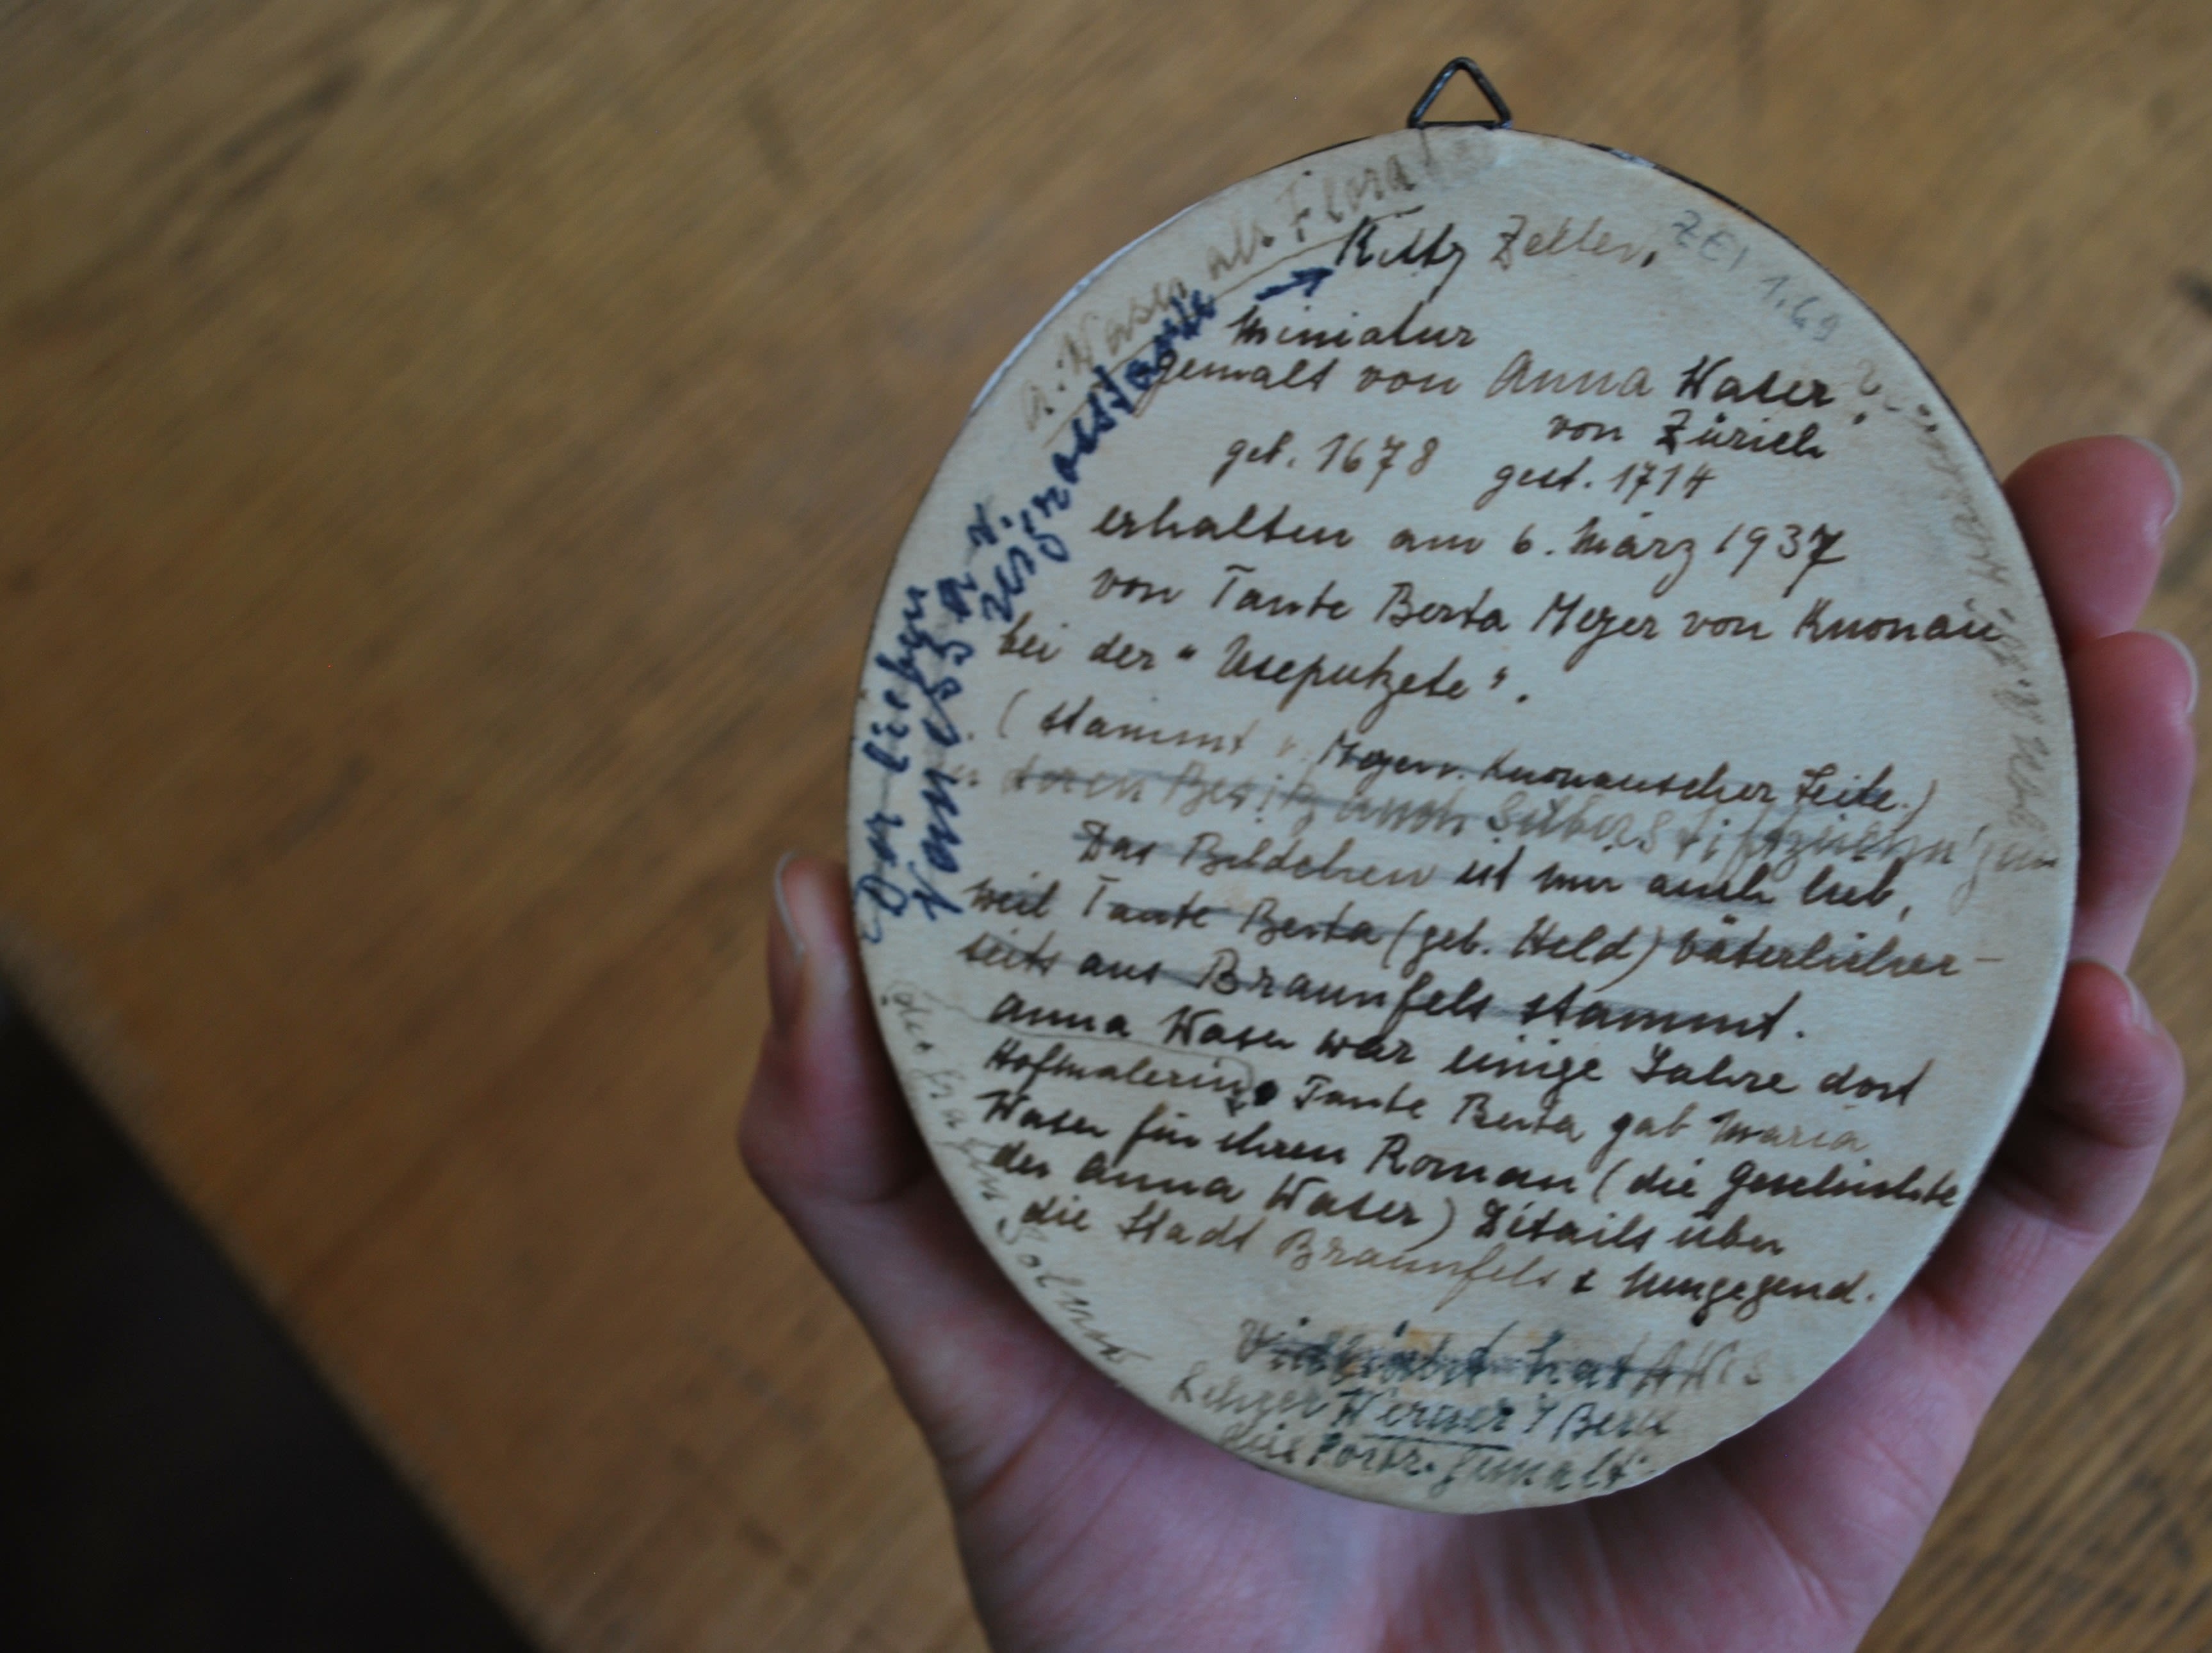 A. Waser als Flora
Kitty Zeller,
ZEI 1.69
Miniatur
gemalt von Anna Waser
von Zürich
geb. 1678 gest. 1714
erhalten am 6. März 1937
von Tante Berta Meyer von Knonau
bei der "Useputzete".
(stammt v. Meyer v. Knonauscher Seite.)
deren Besitz auch Silberstiftzeichn'gen
Das Bildchen ist mir auch lieb,
weil Tante Berta (geb. Held) väterlicher-
seits aus Braunfels stammt.
Anna Waser war einige Jahre dort
Hofmalerin. Tante Berta gab Maria
Waser für ihren Roman (die Geschichte
der Anna Waser) Details über
die Stadt Braunfels & Umgegend.
Vielleicht hat AWs
Lehrer Werner i/Bern
die Portr. gemalt.
Der lieben
Vanessa v.
Urgrosstante →